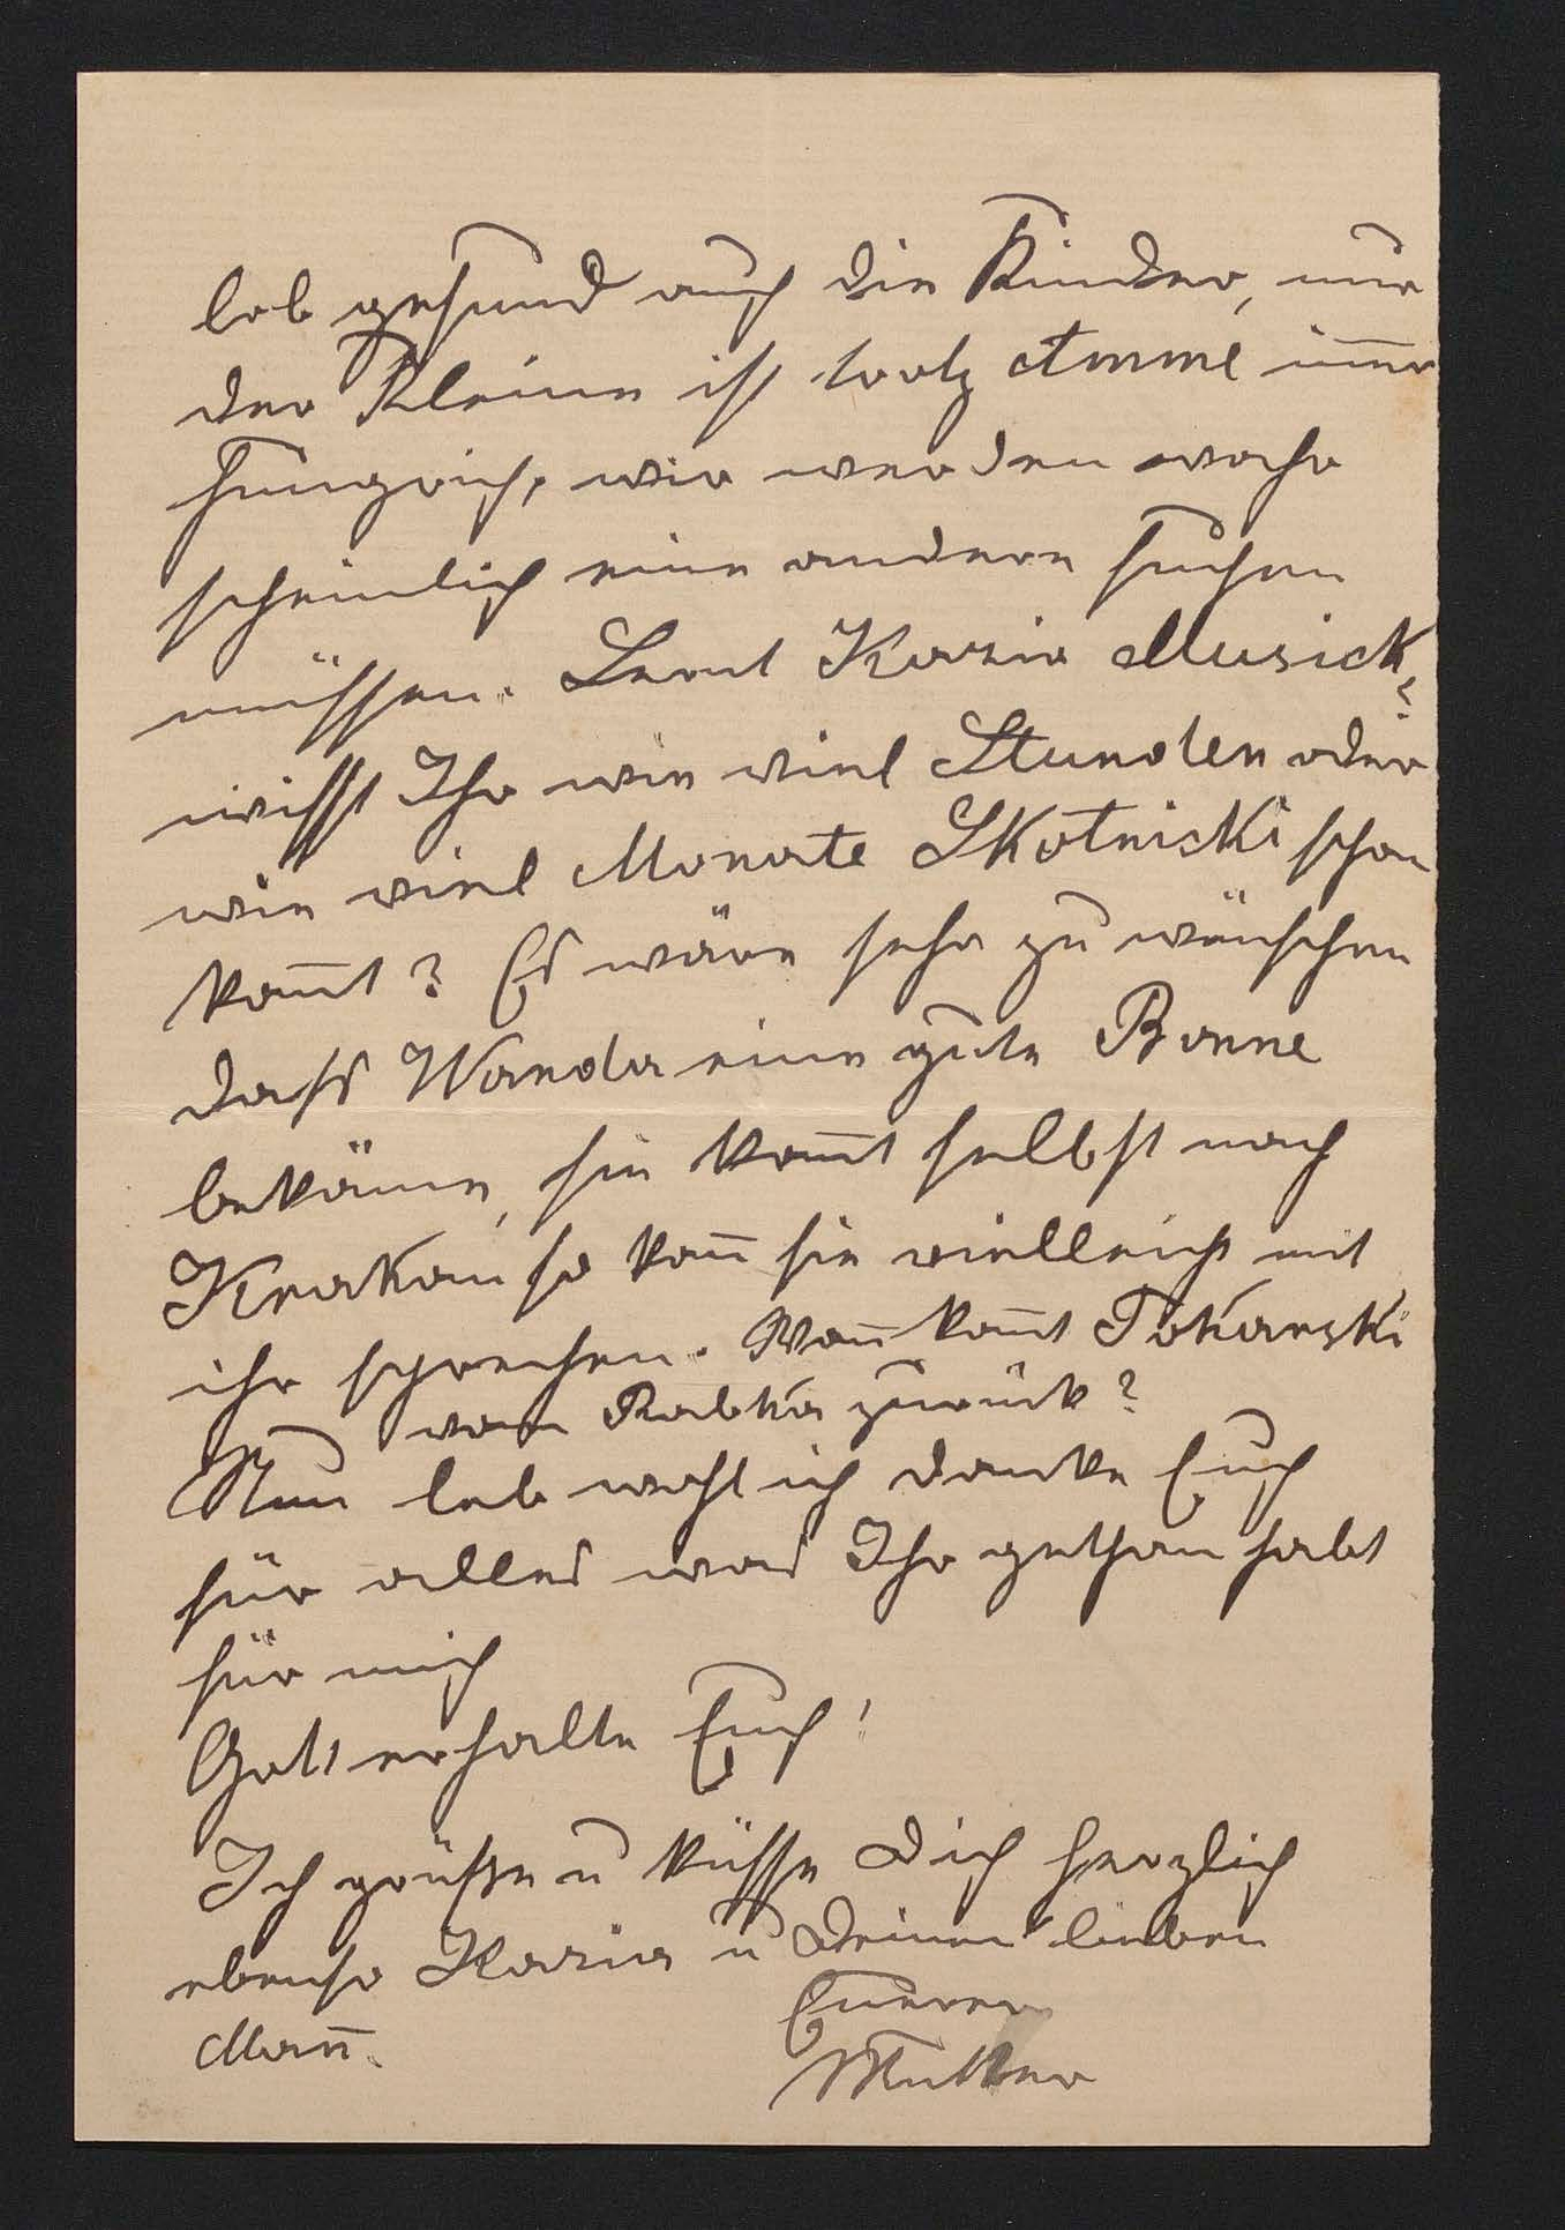 lob gesund auch die Kinder, nur
der Kleine ist trotz Amme im̄er
hungrich, wir werden wahr
scheinlich eine andere suchen
müssen. Lernt Kazia Musick?
wisst Ihr wie viel Stunden oder
wie viel Monate Skotnicki schon
kom̄t? Es wäre sehr zu wünschen
dass Wanda eine gute Bonne
bekäme, sie kom̄t selbst nach
Krakau so kan̄ sie vielleicht mit
ihr sprechen. Wan̄ kom̄t Tokarski
von Rabka zurück?
Nun leb wohl ich danke Euch
für alles was Ihr gethan habt
für mich
Gott erhalte Euch!
Ich grüße u küsse Dich herzlich
ebenso Kazia u Deinen lieben
Man̄.
Euere
Mutter